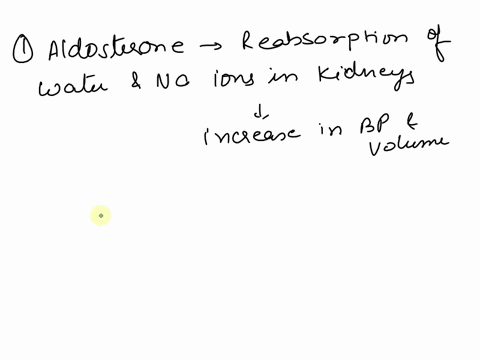 ① Aldosterone → Reabsorption of
water & Na ions in Kidneys
↓
increase in BP &
volume